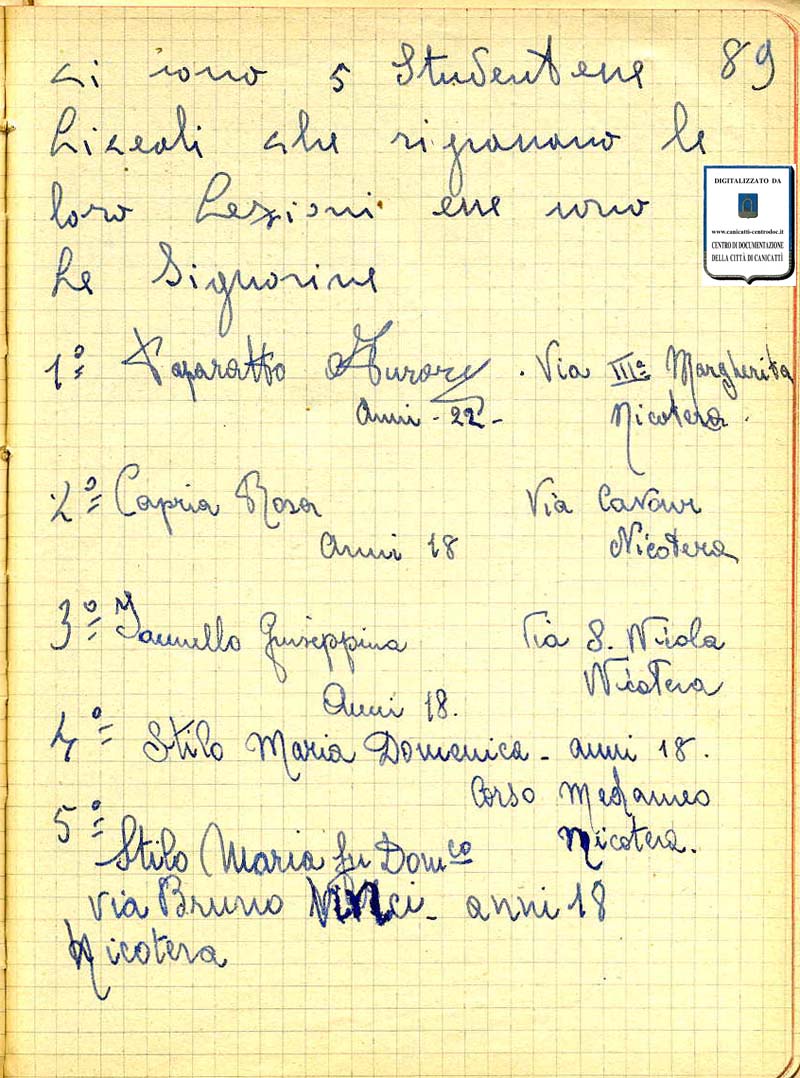 89
ci sono 5 Studentene
Liceali che ripanano le
loro Lezioni ene sono
Le Signorine
DIGITALIZZATO DA
www.canicatti-centrodoc.it
CENTRO DI DOCUMENTAZIONE
DELLA CITTÀ DI CANICATTÌ
1º Paparatto Aurora . Via IIIª Margherita
Anni - 22 - Nicotera .
2º Capria Rosa Via Cavour
Anni 18 Nicotera
3º Iannello Giuseppina Via S. Nicola
Nicotera
Anni 18.
4º Stilo Maria Domenica - anni 18.
Corso
Nicotera.
5º Stilo Maria fu Domco
via Bruno - anni 18
Nicotera